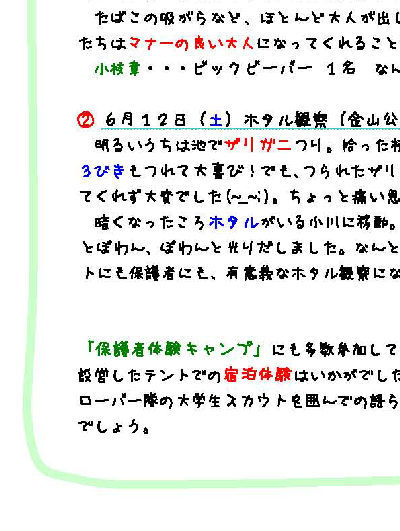 たばこの吸がらなど、ほとんど大人が出し
たちはマナーの良い大人になってくれること
小枝章・・・ビックビーバー １名 なん
② ６月１２日（土）ホタル観察（金山公
明るいうちは池でザリガニつり。拾った枝
３びきもつれて大喜び！でも、つられたザリ
てくれず大変でした(~_~;)。ちょっと痛い思
暗くなったころホタルがいる小川に移動。
とぽわん、ぽわんと光りだしました。なんと
トにも保護者にも、有意義なホタル観察にな
「保護者体験キャンプ」にも多数参加して
設営したテントでの宿泊体験はいかがでした
ローバー隊の大学生スカウトを囲んでの語ら
でしょう。